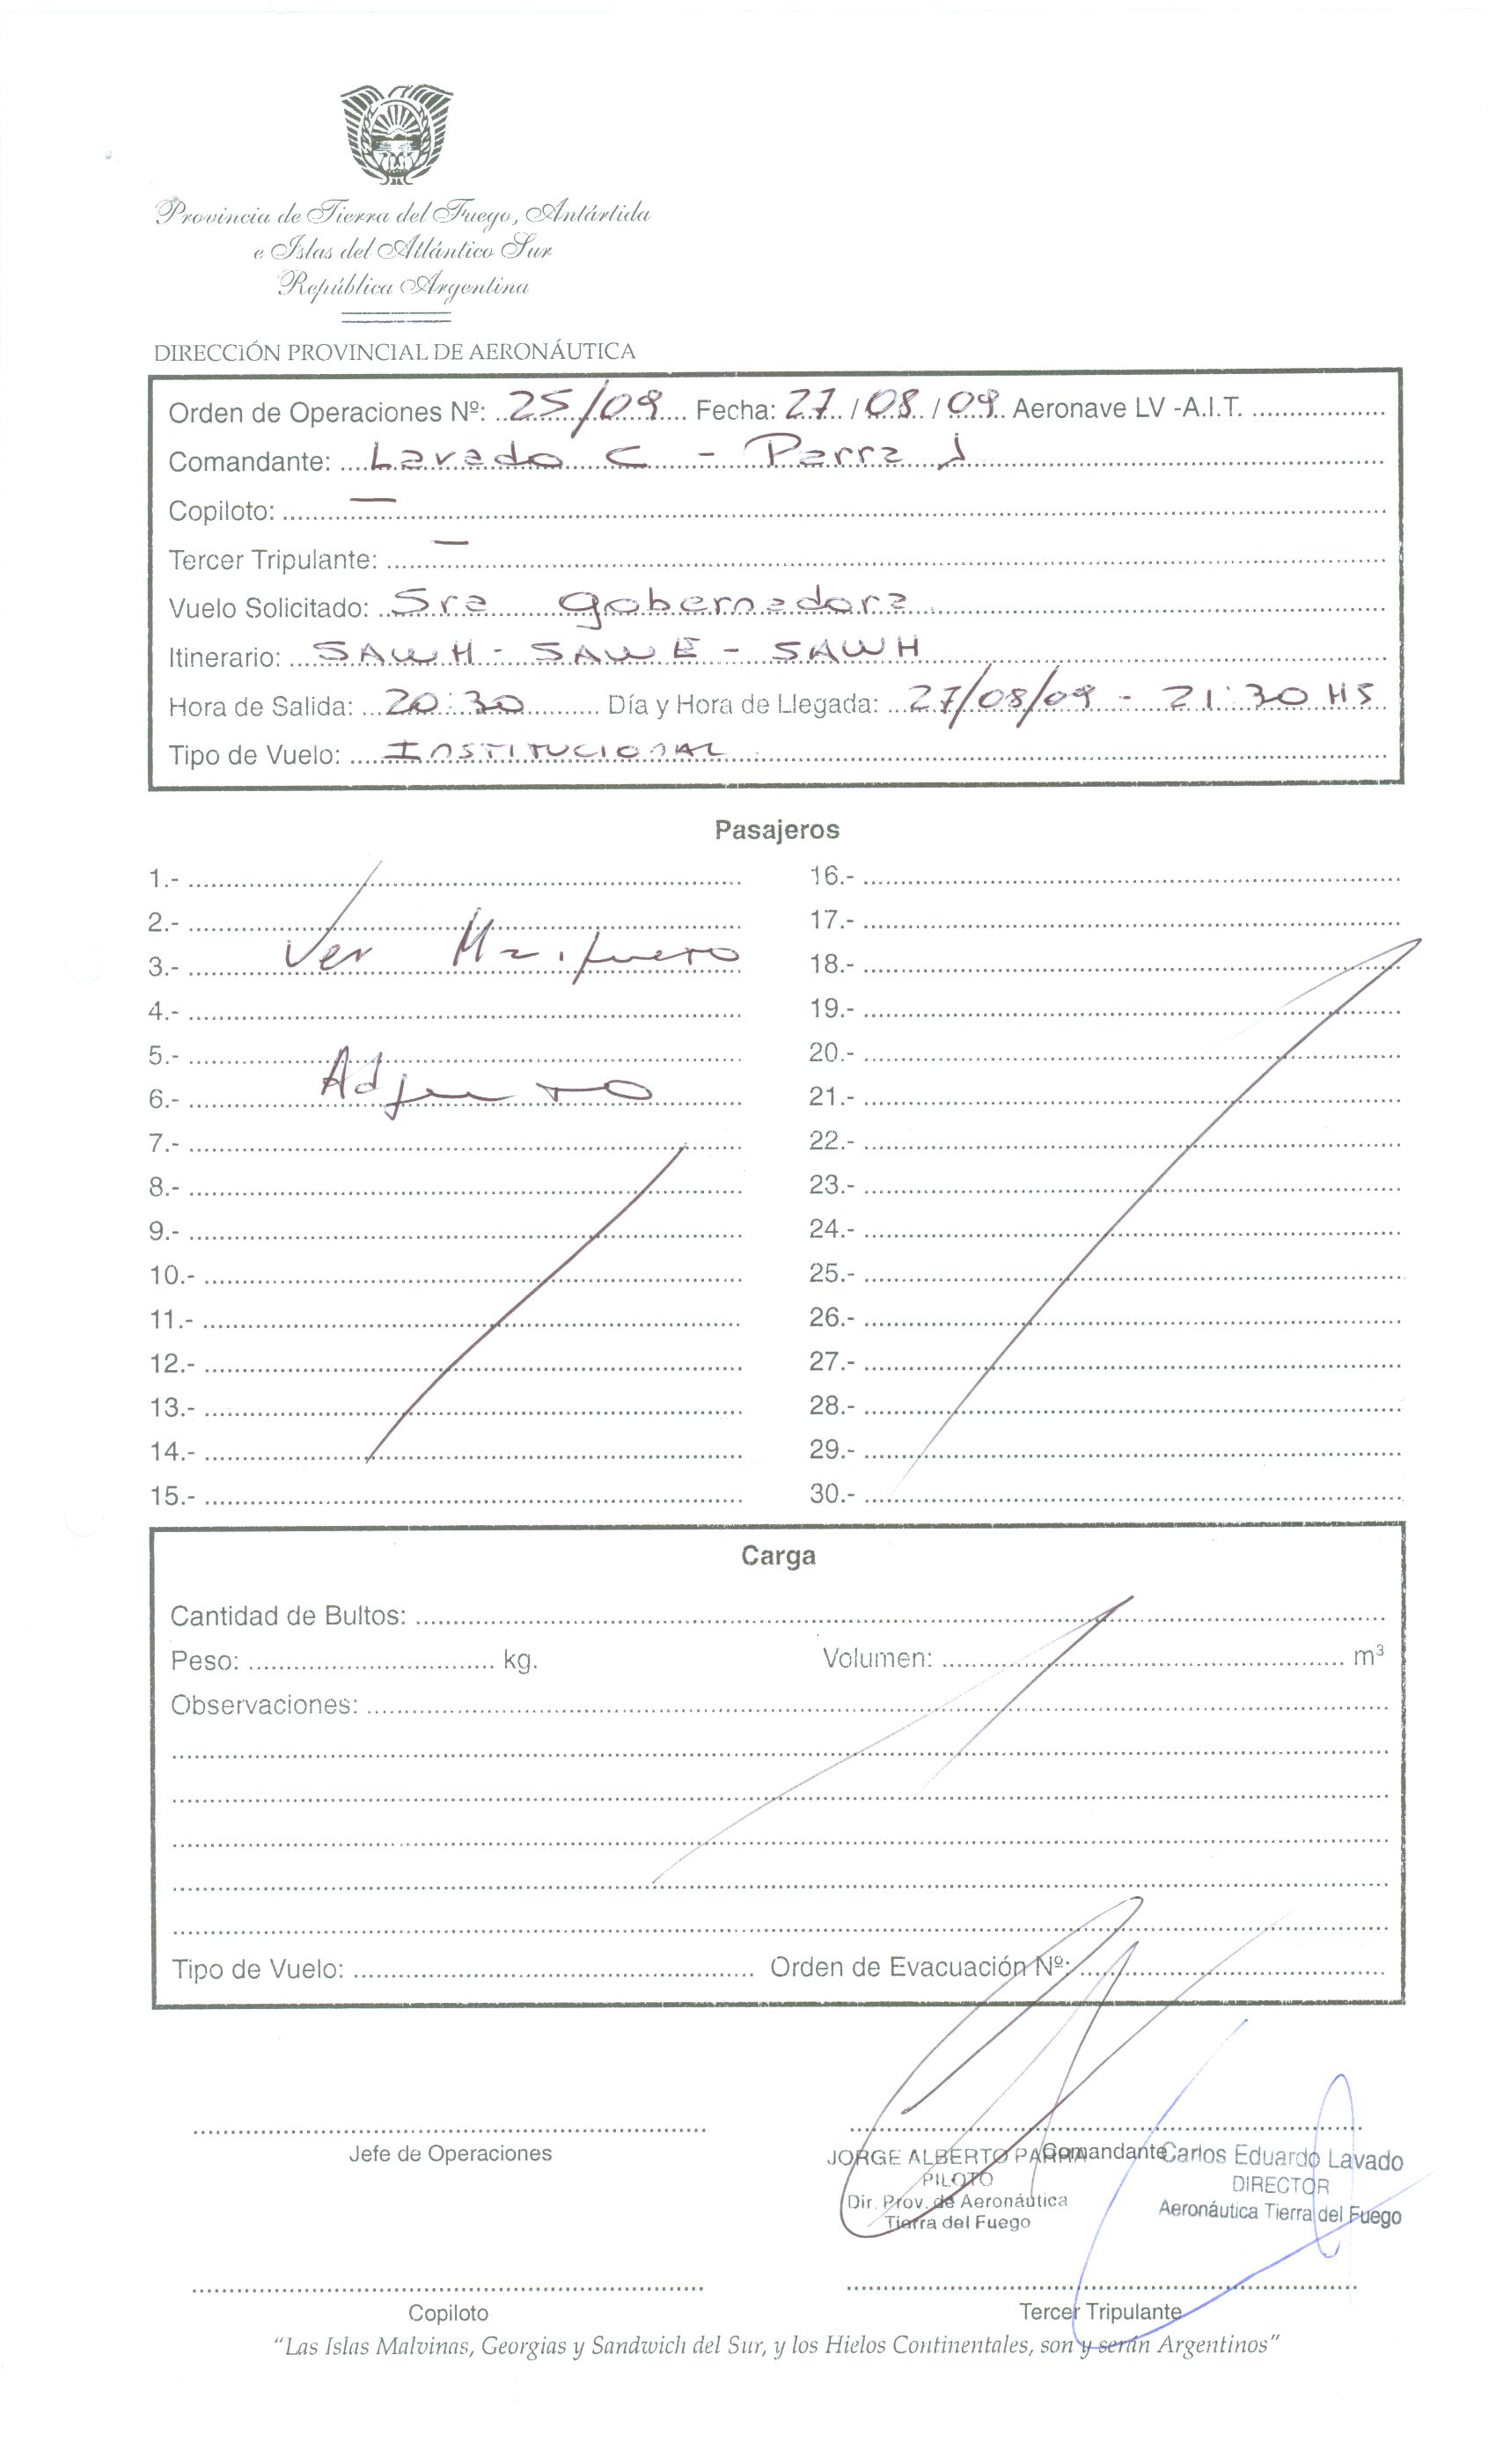 Provincia de Tierra del Fuego, Antártida
e Islas del Atlántico Sur
República Argentina
DIRECCIÓN PROVINCIAL DE AERONÁUTICA
Orden de Operaciones Nº: 25/09 Fecha: 27 / 08 / 09 Aeronave LV -A.I.T.
Comandante: Lavado C - Parra J
Copiloto: —
Tercer Tripulante: —
Vuelo Solicitado: Sra gobernadora
Itinerario: SAWH - SAWE - SAWH
Hora de Salida: 20:30 Día y Hora de Llegada: 27/08/09 - 21:30 HS
Tipo de Vuelo: INSTITUCIONAL
Pasajeros
1.- 16.-
2.- 17.-
3.- Ver 18.-
4.- 19.-
5.- 20.-
6.- Adjunto 21.-
7.- 22.-
8.- 23.-
9.- 24.-
10.- 25.-
11.- 26.-
12.- 27.-
13.- 28.-
14.- 29.-
15.- 30.-
Carga
Cantidad de Bultos:
Peso: kg. Volumen: m³
Observaciones:
Tipo de Vuelo: Orden de Evacuación Nº:
Jefe de Operaciones Comandante
JORGE ALBERTO PARRA Carlos Eduardo Lavado
PILOTO DIRECTOR
Dir. Prov. de Aeronáutica Aeronáutica Tierra del Fuego
Tierra del Fuego
Copiloto Tercer Tripulante
"Las Islas Malvinas, Georgias y Sandwich del Sur, y los Hielos Continentales, son y serán Argentinos"